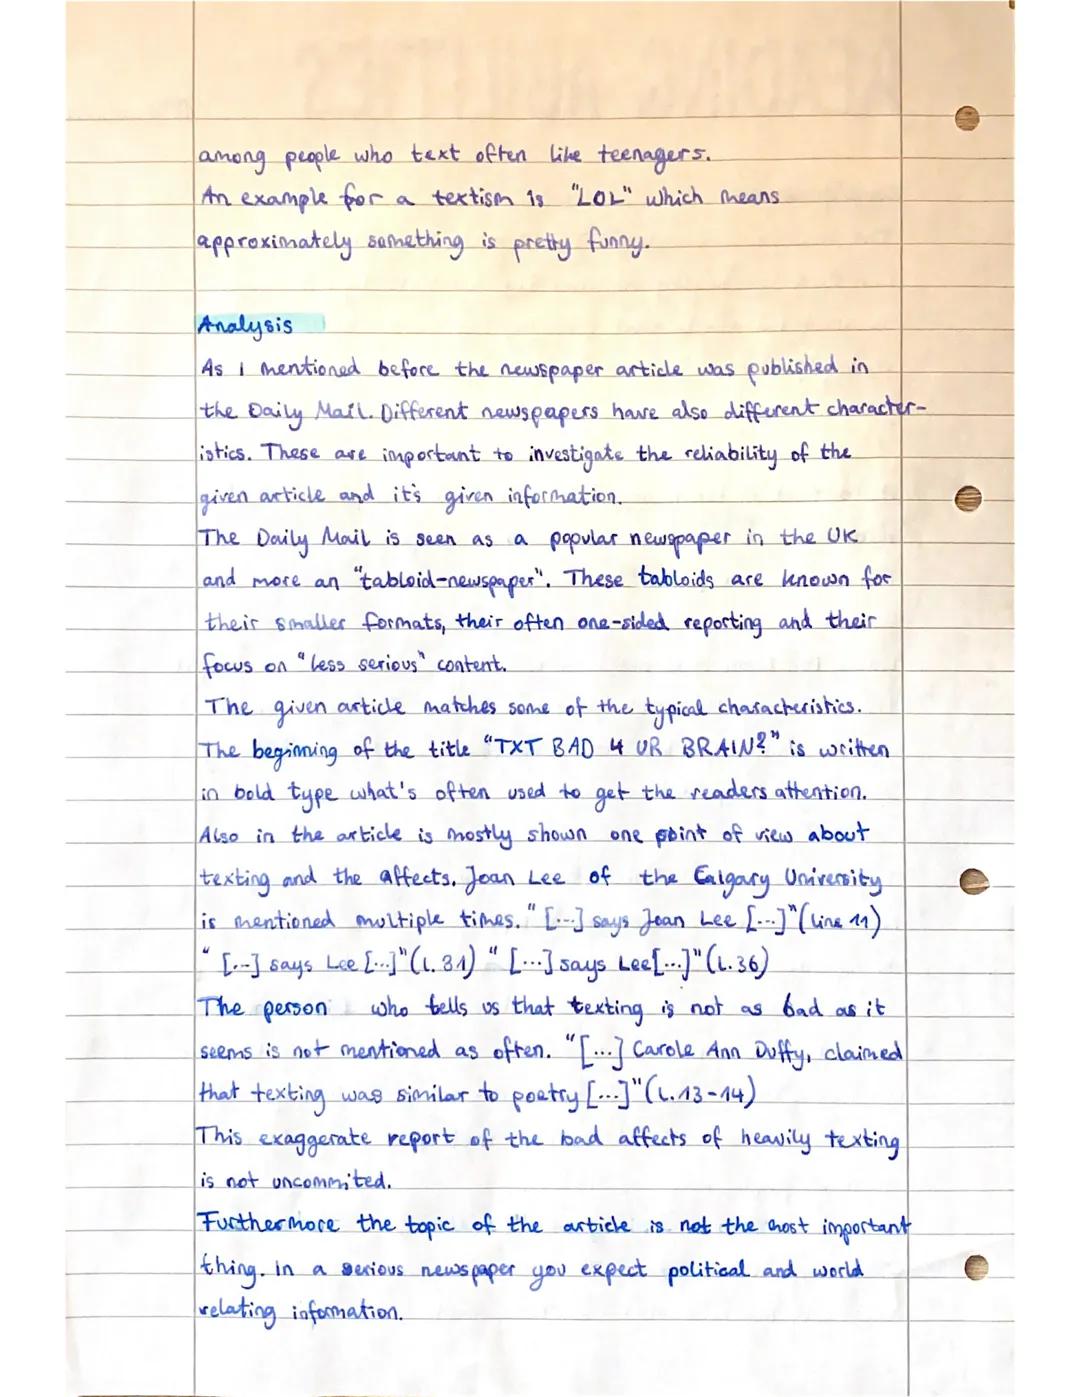 among people who text often like teenagers.
An example for a textism is "LOL" which means
approximately something is pretty funny.
Analysis
As I mentioned before the newspaper article was published in
the Daily Mail. Different newspapers have also different character-
istics. These are important to investigate the reliability of the
given article and it's given information.
The Daily Mail is seen as a popular newspaper in the UK
and more an "tabloid-newspaper". These tabloids are known for
their smaller formats, their often one-sided reporting and their
focus on "less serious" content.
The given article matches some of the typical characteristics.
The beginning of the title "TXT BAD 4 UR BRAIN?" is written
in bold type what's often used to get the readers attention.
Also in the article is mostly shown one point of view about
texting and the affects. Joan Lee of the Calgary University
is mentioned multiple times. "[...] says Joan Lee [...]" (line 11)
"[...] says Lee [...]" (l. 31) "[...] says Lee [...]" (l. 36)
The person who tells us that texting is not as bad as it
seems is not mentioned as often. "[...] Carole Ann Duffy, claimed
that texting was similar to poetry [...]" (l. 13-14)
This exaggerate report of the bad affects of heavily texting
is not uncommited.
Furthermore the topic of the article is not the most important
thing. in a serious newspaper you expect political and world
relating information.